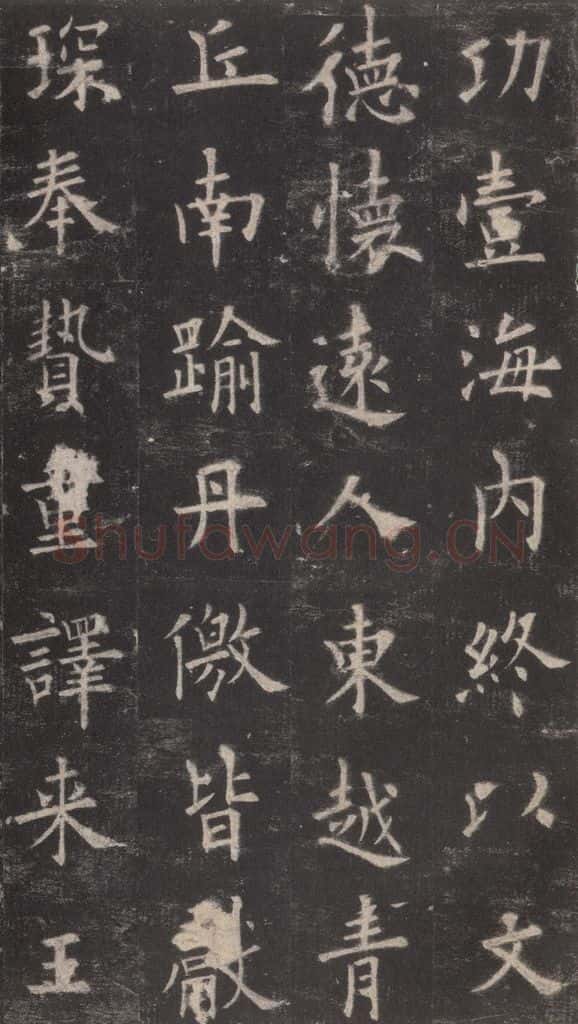 功壹海内終以文
德懷遠人東越青
丘南踰丹徼皆獻
琛奉贄重譯来王
Shufawang.CN